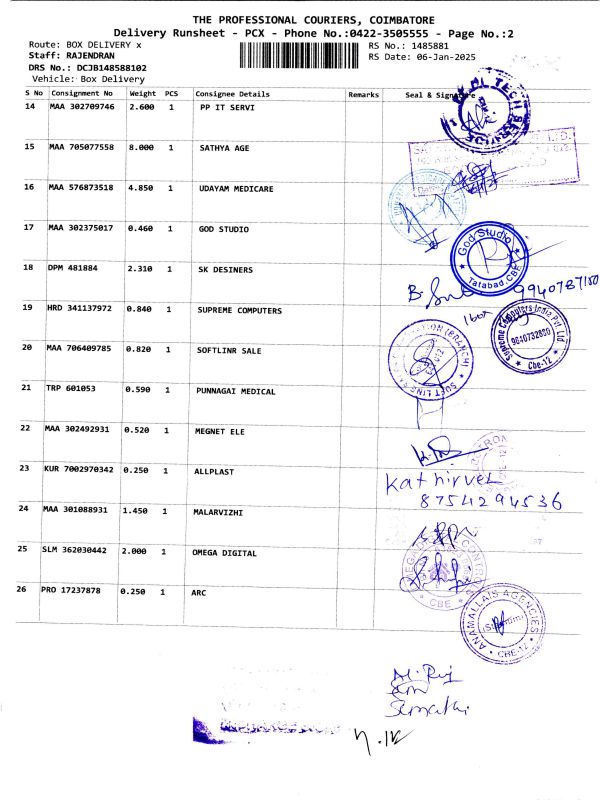 THE PROFESSIONAL COURIERS, COIMBATORE
Delivery Runsheet - PCX - Phone No.:0422-3505555 - Page No.:2
Route: BOX DELIVERY x RS No.: 1485881
Staff: RAJENDRAN RS Date: 06-Jan-2025
DRS No.: DCJB148588102
Vehicle: Box Delivery
S No Consignment No Weight PCS Consignee Details Remarks Seal & Signature
14 MAA 302709746 2.600 1 PP IT SERVI
15 MAA 705077558 8.000 1 SATHYA AGE
16 MAA 576873518 4.850 1 UDAYAM MEDICARE
17 MAA 302375017 0.460 1 GOD STUDIO
God Studio
Tatabad, CBE
18 DPM 481884 2.310 1 SK DESINERS
9940787100
19 HRD 341137972 0.840 1 SUPREME COMPUTERS
1 box
Supreme Computers India Pvt. Ltd
9840732829
Cbe-12
20 MAA 706409785 0.820 1 SOFTLINR SALE
(BRANCH)
21 TRP 601053 0.590 1 PUNNAGAI MEDICAL
22 MAA 302492931 0.520 1 MEGNET ELE
23 KUR 7002970342 0.250 1 ALLPLAST
Kathirvel
8754294536
24 MAA 301088931 1.450 1 MALARVIZHI
25 SLM 362030442 2.000 1 OMEGA DIGITAL
CBE
26 PRO 17237878 0.250 1 ARC
ANAMALLAIS AGENCIES
CBE-12